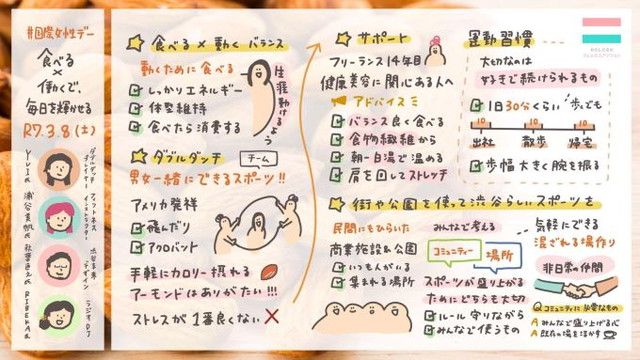 #国際女性デー
食べる
×
働くで、
毎日を輝かせる
R7.3.8(土)
ダブルダッチ
プレイヤー
YUI氏
フィットネス
インストラクター
浦谷美帆氏
渋谷未来
デザイン
秋葉直之氏
ラジオDJ
RIBEKA氏
食べる×動くバランス
動くために食べる
しっかりエネルギー
体型維持
食べたら消費する
生涯動けるよう
ダブルダッチ
チーム
男女一緒にできるスポーツ!!
アメリカ発祥
飛んだり
アクロバット
手軽にカロリー摂れる
アーモンドはありがたい!!!
ストレスが1番良くない
サポート
フリーランス14年目
健康美容に関心ある人へ
アドバイス
バランス良く食べる
食物繊維から
朝一白湯で温める
肩を回してストレッチ
運動習慣
大切なのは
好きで続けられるもの
1日30分くらい歩くでも
10
10
10
出社
散歩
帰宅
歩幅大きく腕を振る
街や公園を使って渋谷らしいスポーツを
民間にもひらいた
商業施設&公園
いつも人がいる
集まれる場所
みんなで考える
コミュニティー
場所
スポーツが盛り上がる
ためにどちらも大切
ルール守りながら
みんなで使うもの
気軽にできる
混ざれる場作り
非日常の仲間
Q コミュニティに必要なもの
A みんなで盛り上げる心
A 既存の場を活かす